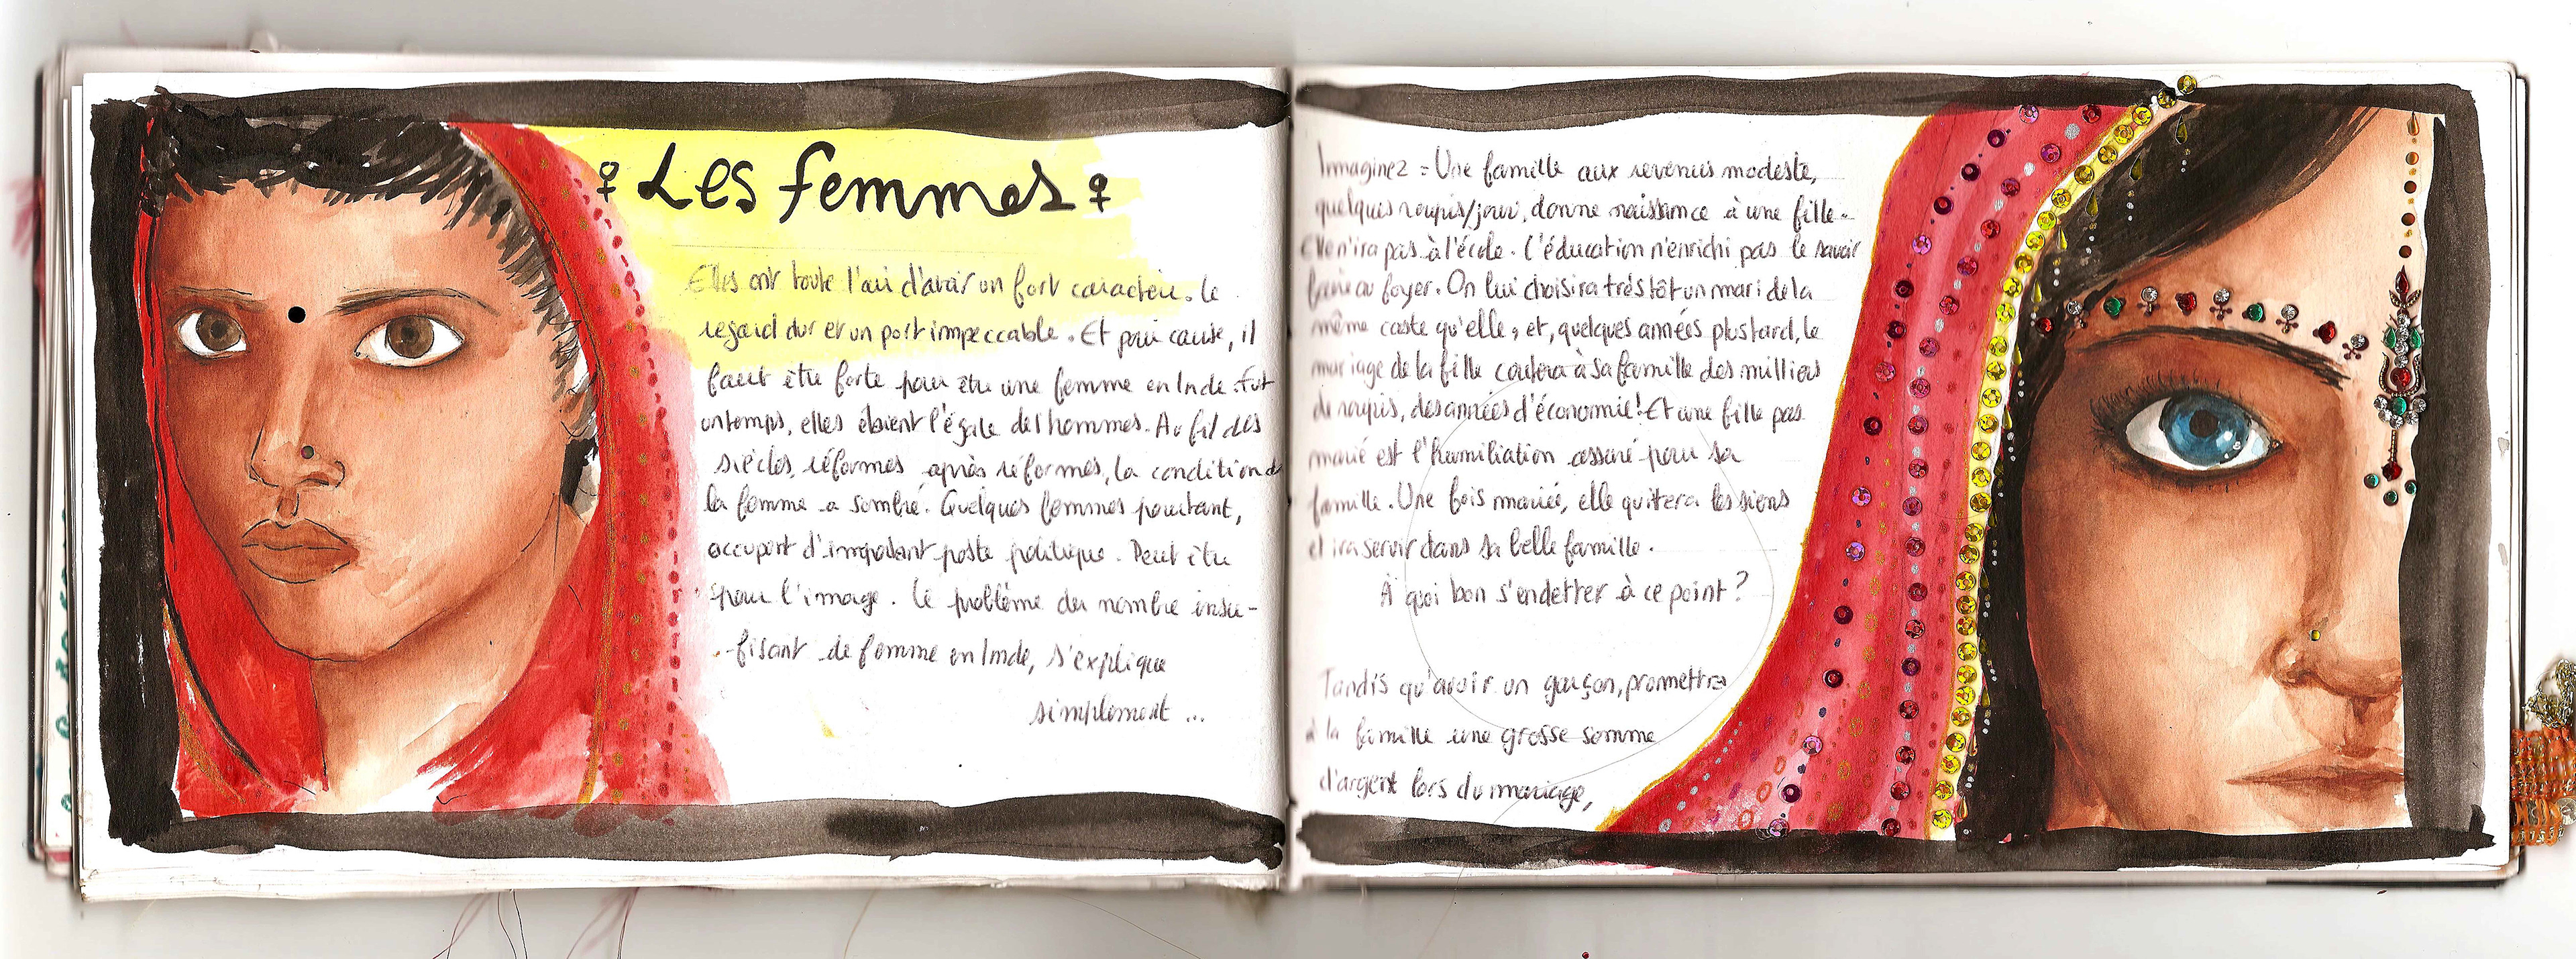 ♀ Les femmes ♀
Elles ont toute l'air d'avoir un fort caractère. Le
regard dur et un port impeccable. Et pour cause, il
faut être forte pour être une femme en Inde. Fut
un temps, elles étaient l'égale de l'hommes. Au fil des
siècles, réformes après réformes, la condition de
la femme a sombré. Quelques femmes pourtant,
occupent d'important poste politique. Peut être
pour l'image. Le problème du nombre insu-
-fisant de femme en Inde, s'explique
simplement ...
Immaginez = Une famille aux revenus modeste,
quelques roupis/jour, donne naissance à une fille.
Elle n'ira pas à l'école. L'éducation n'enrichi pas le savoir
faire au foyer. On lui choisira très tôt un mari de la
même caste qu'elle, et, quelques années plus tard, le
mariage de la fille coutera à sa famille des milliers
de roupis, des années d'économie! Et une fille pas
marié est l'humiliation assuré pour sa
famille. Une fois mariée, elle quittera les siens
et ira servir dans sa belle famille.
À quoi bon s'endetter à ce point?
Tandis qu'avoir un garçon, promettra
à la famille une grosse somme
d'argent lors du mariage,